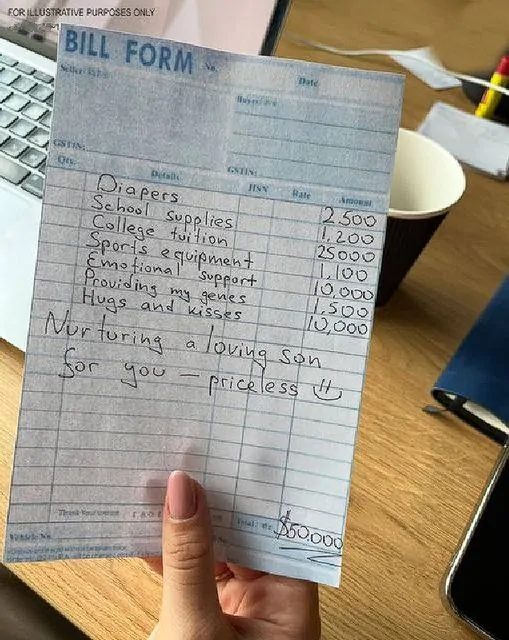 FOR ILLUSTRATIVE PURPOSES ONLY
BILL FORM No.
Date
GSTIN:
GSTIN:
Qty. Details HSN Rate Amount
Diapers 2,500
School supplies 1,200
College tuition 25000
Sports equipment 1,100
Emotional support 10,000
Providing my genes 1,500
Hugs and kisses 10,000
Nurturing a loving son
for you — priceless
Total: $50,000
Vehicle No.